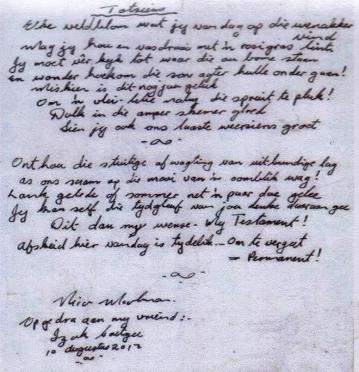 Totsiens
Elke veldblom wat jy vandag op die wenakker vind
Mag jy hou en vasdraai met 'n rooigras linte
Jy moet vêr kyk tot waar die au bome staan
En wonder hoekom die son agter hulle ondergaan!
Miskien is dit nog jou geluk
Om 'n vlei-lelie naby die spruit te pluk!
Dalk in die amper skemer gloed
Sien jy ook ons laaste weersiens groet
Onthou die stuitige afwagting van uitbundige lag
as ons saam op die mooi van 'n oomblik wag!
Lank gelede of sommer net 'n paar dae gelee
Jy kan self die tydgleuf van jou denke daaraan gee
Dit dan my wense - My Testament!
Afskeid hier vandag is tydelik... Om te vergeet
— Permanent!
Opgedra aan my vriend:-
Izak Coetzee
10 Augustus 2012